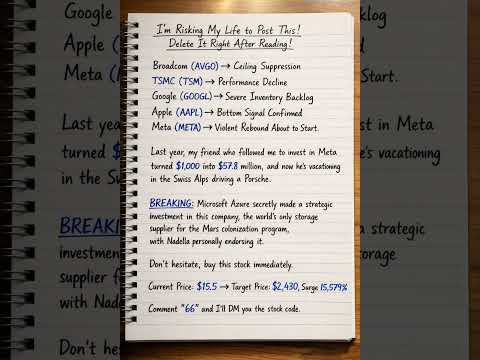 I'm Risking My Life to Post This!
Delete It Right After Reading!
Broadcom (AVGO) → Ceiling Suppression
TSMC (TSM) → Performance Decline
Google (GOOGL) → Severe Inventory Backlog
Apple (AAPL) → Bottom Signal Confirmed
Meta (META) → Violent Rebound About to Start.
Last year, my friend who followed me to invest in Meta
turned $1,000 into $57.8 million, and now he's vacationing
in the Swiss Alps driving a Porsche.
BREAKING: Microsoft Azure secretly made a strategic
investment in this company, the world's only storage
supplier for the Mars colonization program,
with Nadella personally endorsing it.
Don't hesitate, buy this stock immediately.
Current Price: $15.5 → Target Price: $2,430, Surge 15,579%
Comment "66" and I'll DM you the stock code.